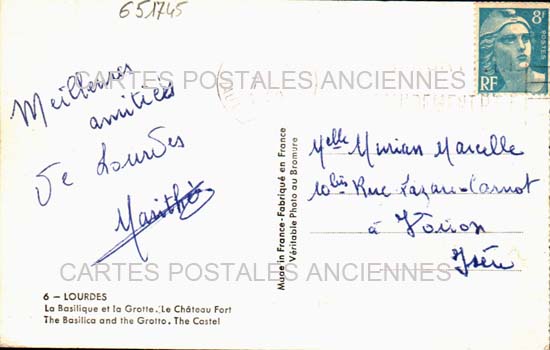 651745
8F
POSTES
RF
CARTES POSTALES ANCIENNES
Meilleures
amitiés
de Lourdes
Marithé
Made in France - Fabriqué en France
Véritable Photo au Bromure
Melle Murian Marcelle
10 bis Rue Lazare-Carnot
à Voiron
Isère
CARTES POSTALES ANCIENNES
6 — LOURDES
La Basilique et la Grotte. Le Château Fort
The Basilica and the Grotto. The Castel